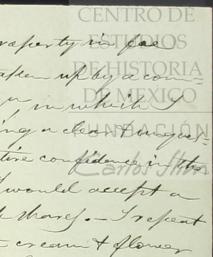 CENTRO DE
ESTUDIOS
DE HISTORIA
DE MEXICO
FUNDACIÓN
Carlos Slim
property is
taken up by a com=
in which I
ing a clear
tire confidence in the
would accept a
shares. — I repeat
cream & flower